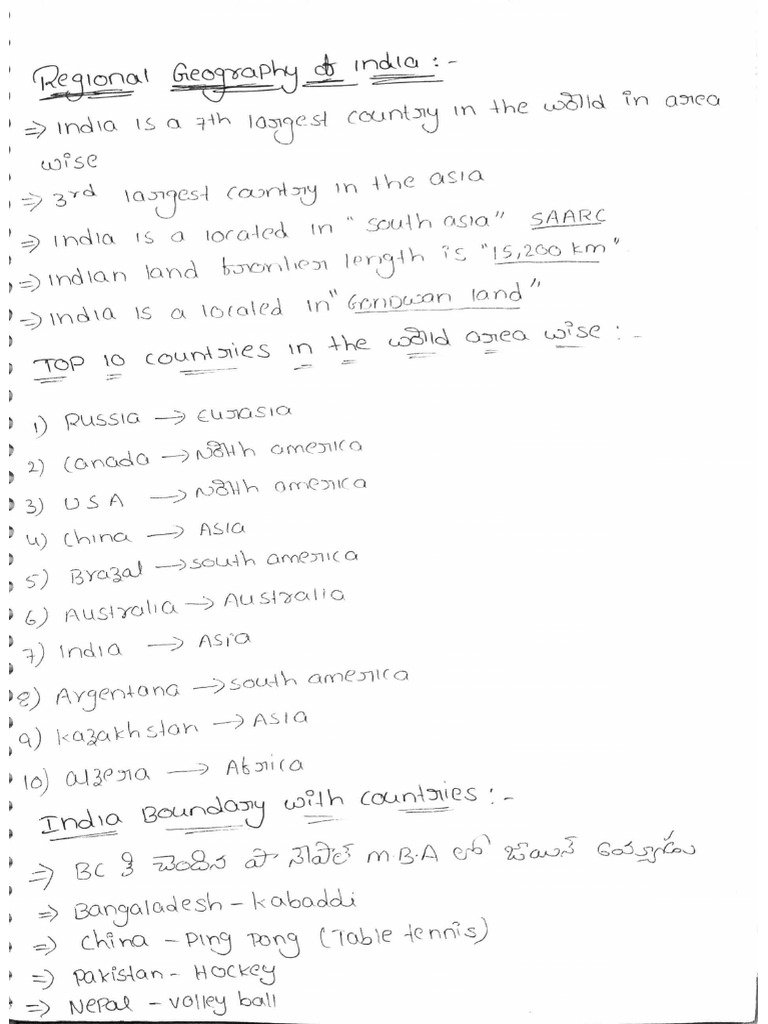 Regional Geography of India :-
=> India is a 7th largest country in the world in area
wise
=> 3rd largest country in the asia
=> India is a located in "south asia" SAARC
=> Indian land frontier length is "15,200 km"
=> India is a located in "Gondwan land"
TOP 10 countries in the world area wise :-
1) Russia → Eurasia
2) Canada → North america
3) USA → North america
4) China → Asia
5) Brazal → south america
6) Australia → Australia
7) India → Asia
8) Argentana → south america
9) Kazakhstan → Asia
10) alzeria → Africa
India Boundary with countries :-
=> BC కి చెందిన పా నేపాల్ M.B.A లో జాయిన్
=> Bangaladesh - Kabaddi
=> China - Ping Pong (Table tennis)
=> Pakistan - Hockey
=> Nepal - volley ball